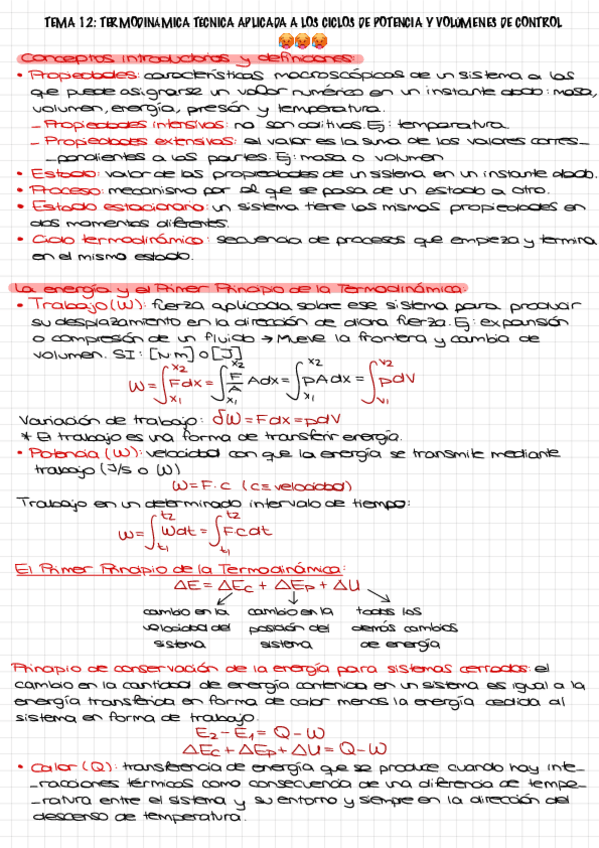 TEMA 1.2: TERMODINÁMICA TÉCNICA APLICADA A LOS CICLOS DE POTENCIA Y VOLÚMENES DE CONTROL
🥵🥵🥵
Conceptos introductorios y definiciones:
• Propiedades: características macroscópicas de un sistema a las
que puede asignarse un valor numérico en un instante dado: masa,
volumen, energía, presión y temperatura.
– Propiedades intensivas: no son aditivas. Ej: temperatura
– Propiedades extensivas: el valor es la suma de los valores corres_
_pondientes a las partes. Ej: masa o volumen
• Estado: valor de las propiedades de un sistema en un instante dado.
• Proceso: mecanismo por el que se pasa de un estado a otro.
• Estado estacionario: un sistema tiene las mismas propiedades en
dos momentos diferentes.
• Ciclo termodinámico: secuencia de procesos que empieza y termina
en el mismo estado.
La energía y el Primer Principio de la Termodinámica:
• Trabajo (W): fuerza aplicada sobre ese sistema para producir
su desplazamiento en la dirección de dicha fuerza. Ej: expansión
o compresión de un fluido → Mueve la frontera y cambia de
volumen. SI: [N m] o [J]
W = ∫x₁x₂ Fdx = ∫x₁x₂ F/A Adx = ∫x₁x₂ pAdx = ∫v₁v₂ pdV
Variación de trabajo: δW = Fdx = pdV
* El trabajo es una forma de transferir energía.
• Potencia (Ẇ): velocidad con que la energía se transmite mediante
trabajo (J/s o W)
Ẇ = F·c (c ≡ velocidad)
Trabajo en un determinado intervalo de tiempo:
W = ∫t₁t₂ Ẇdt = ∫t₁t₂ Fcdt
El Primer Principio de la Termodinámica:
ΔE = ΔEc + ΔEp + ΔU
cambio en la cambio en la todos los
velocidad del posición del demás cambios
sistema sistema de energía
Principio de conservación de la energía para sistemas cerrados: el
cambio en la cantidad de energía contenida en un sistema es igual a la
energía transferida en forma de calor menos la energía cedida al
sistema en forma de trabajo.
E₂ - E₁ = Q - W
ΔEc + ΔEp + ΔU = Q - W
• Calor (Q): transferencia de energía que se produce cuando hay inte_
_racciones térmicas como consecuencia de una diferencia de tempe_
_ratura entre el sistema y su entorno y siempre en la dirección del
descenso de temperatura.